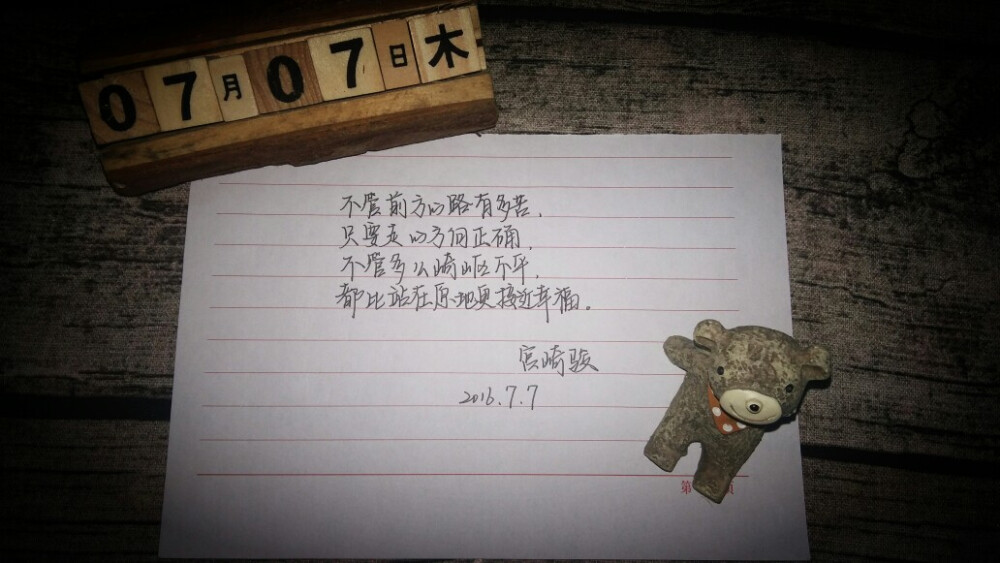 07月07日木
不管前方的路有多苦，
只要走的方向正确，
不管多么崎岖不平，
都比站在原地更接近幸福。
宫崎骏
2016.7.7
第 页